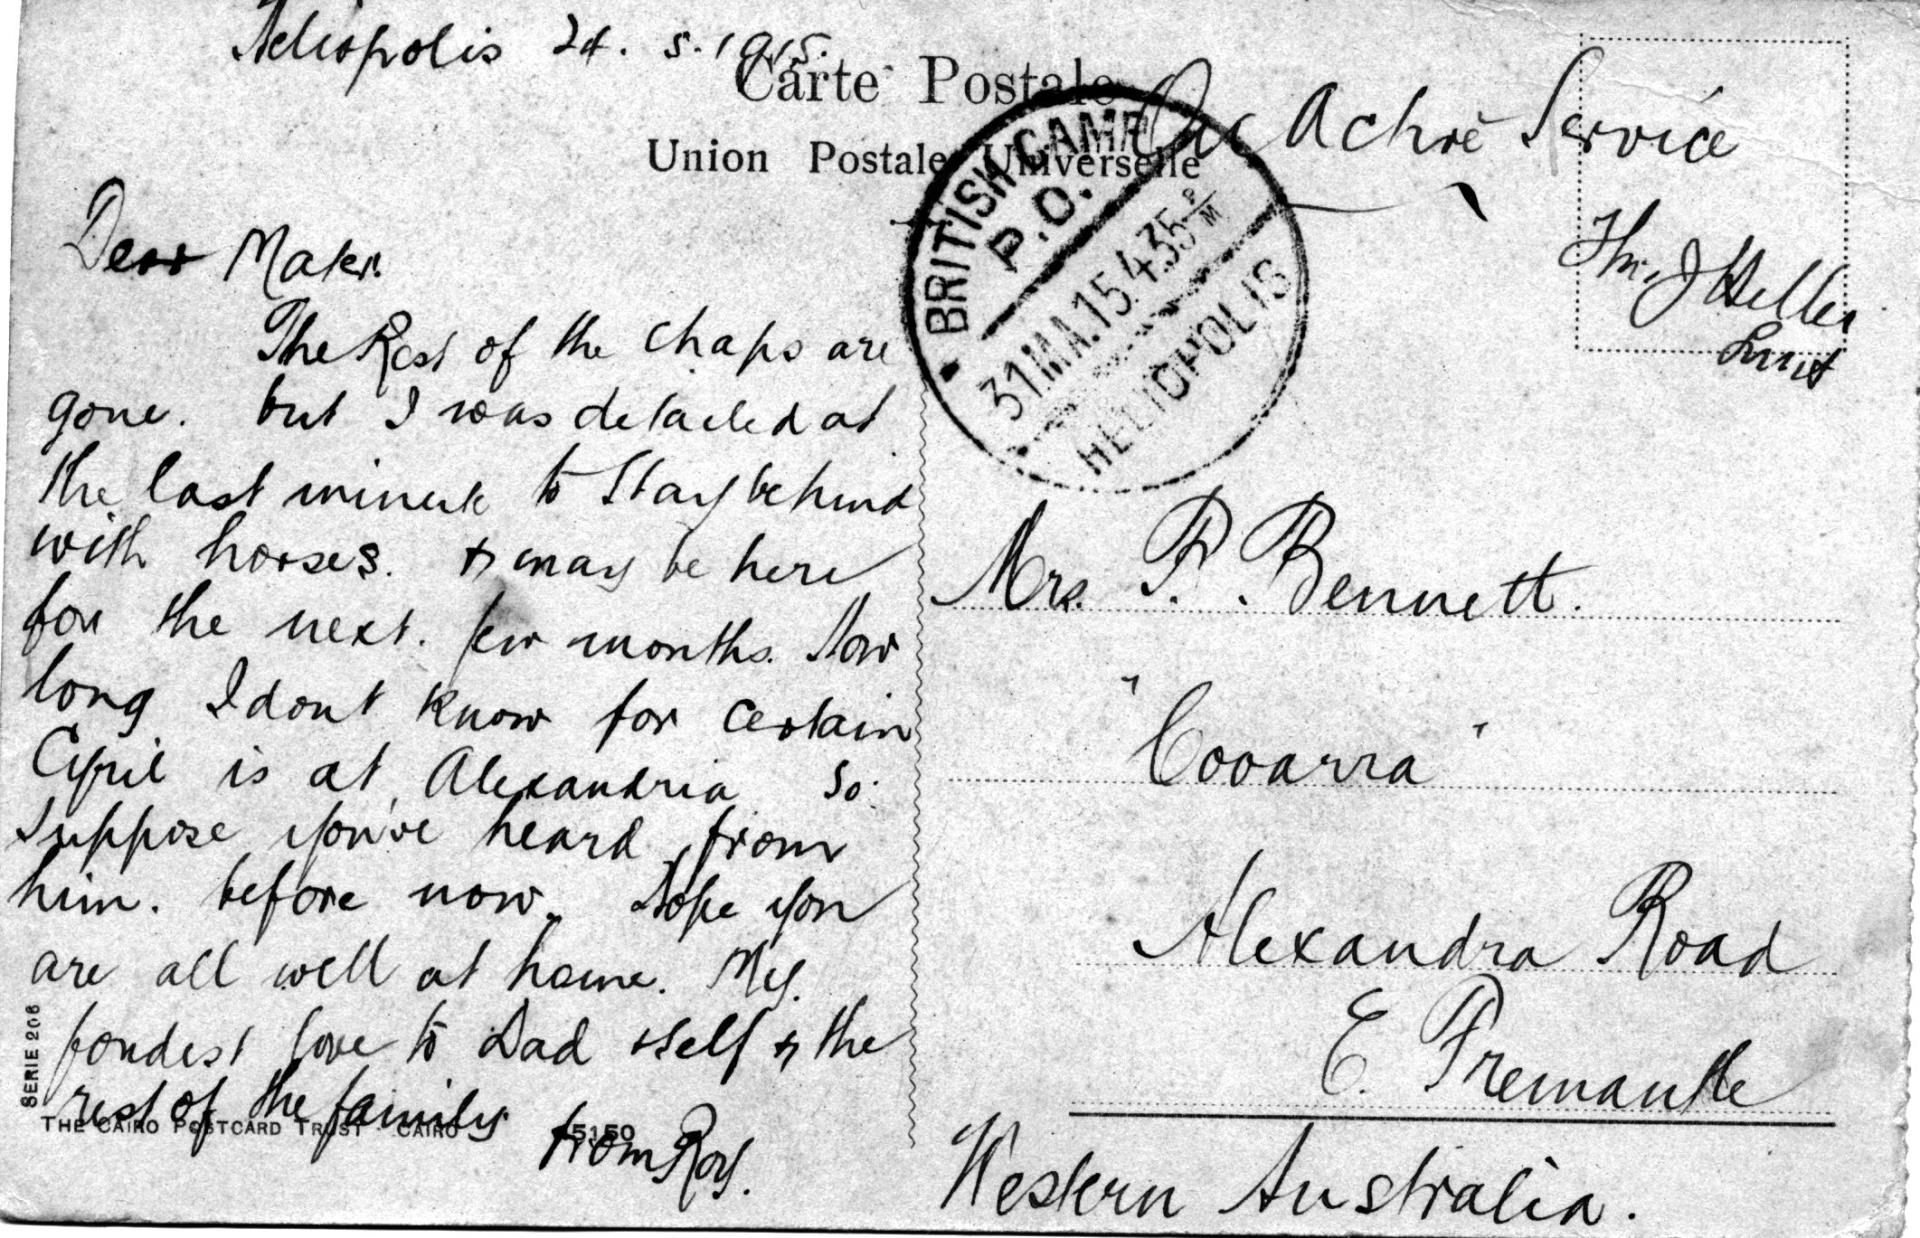 Heliopolis 24. 5. 1915.
Carte Postale
Union Postale Universelle
On Active Service
BRITISH CAMP
P.O.
31 MA. 15. 4.35 PM
HELIOPOLIS
Heller
Dear Mater.
The Rest of the chaps are
gone. but I was detailed at
the last minute to Stay behind
with horses. & may be here
for the next. few months. How
long I dont know for certain
Cyril is at Alexandria So
suppose you've heard from
him. before now. Hope you
are all well at home. My.
fondest love to Dad &self & the
rest of the family
from Roy.
SERIE 206
THE CAIRO POSTCARD TRUST CAIRO
Mrs. P. Bennett.
"Cooarra"
Alexandra Road
E. Fremantle
Western Australia.